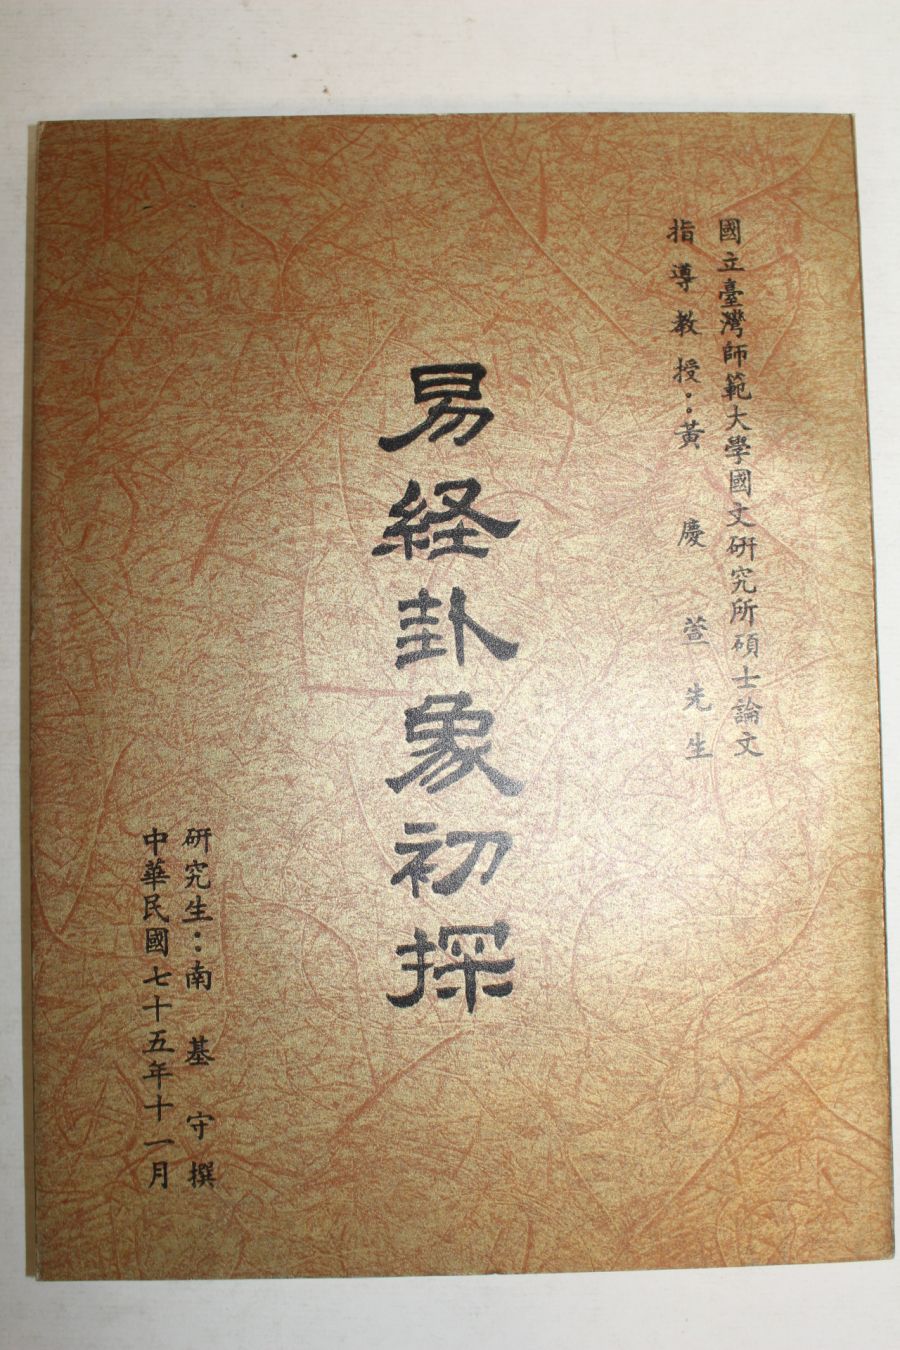 國立臺灣師範大學國文研究所碩士論文
指導教授：黃慶萱先生
易経卦象初探
研究生：南基守撰
中華民國七十五年十一月